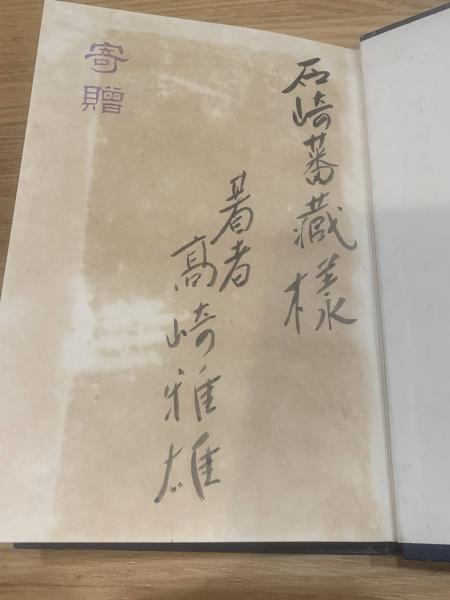 石崎蕃蔵様
著者
高崎雅雄
寄贈